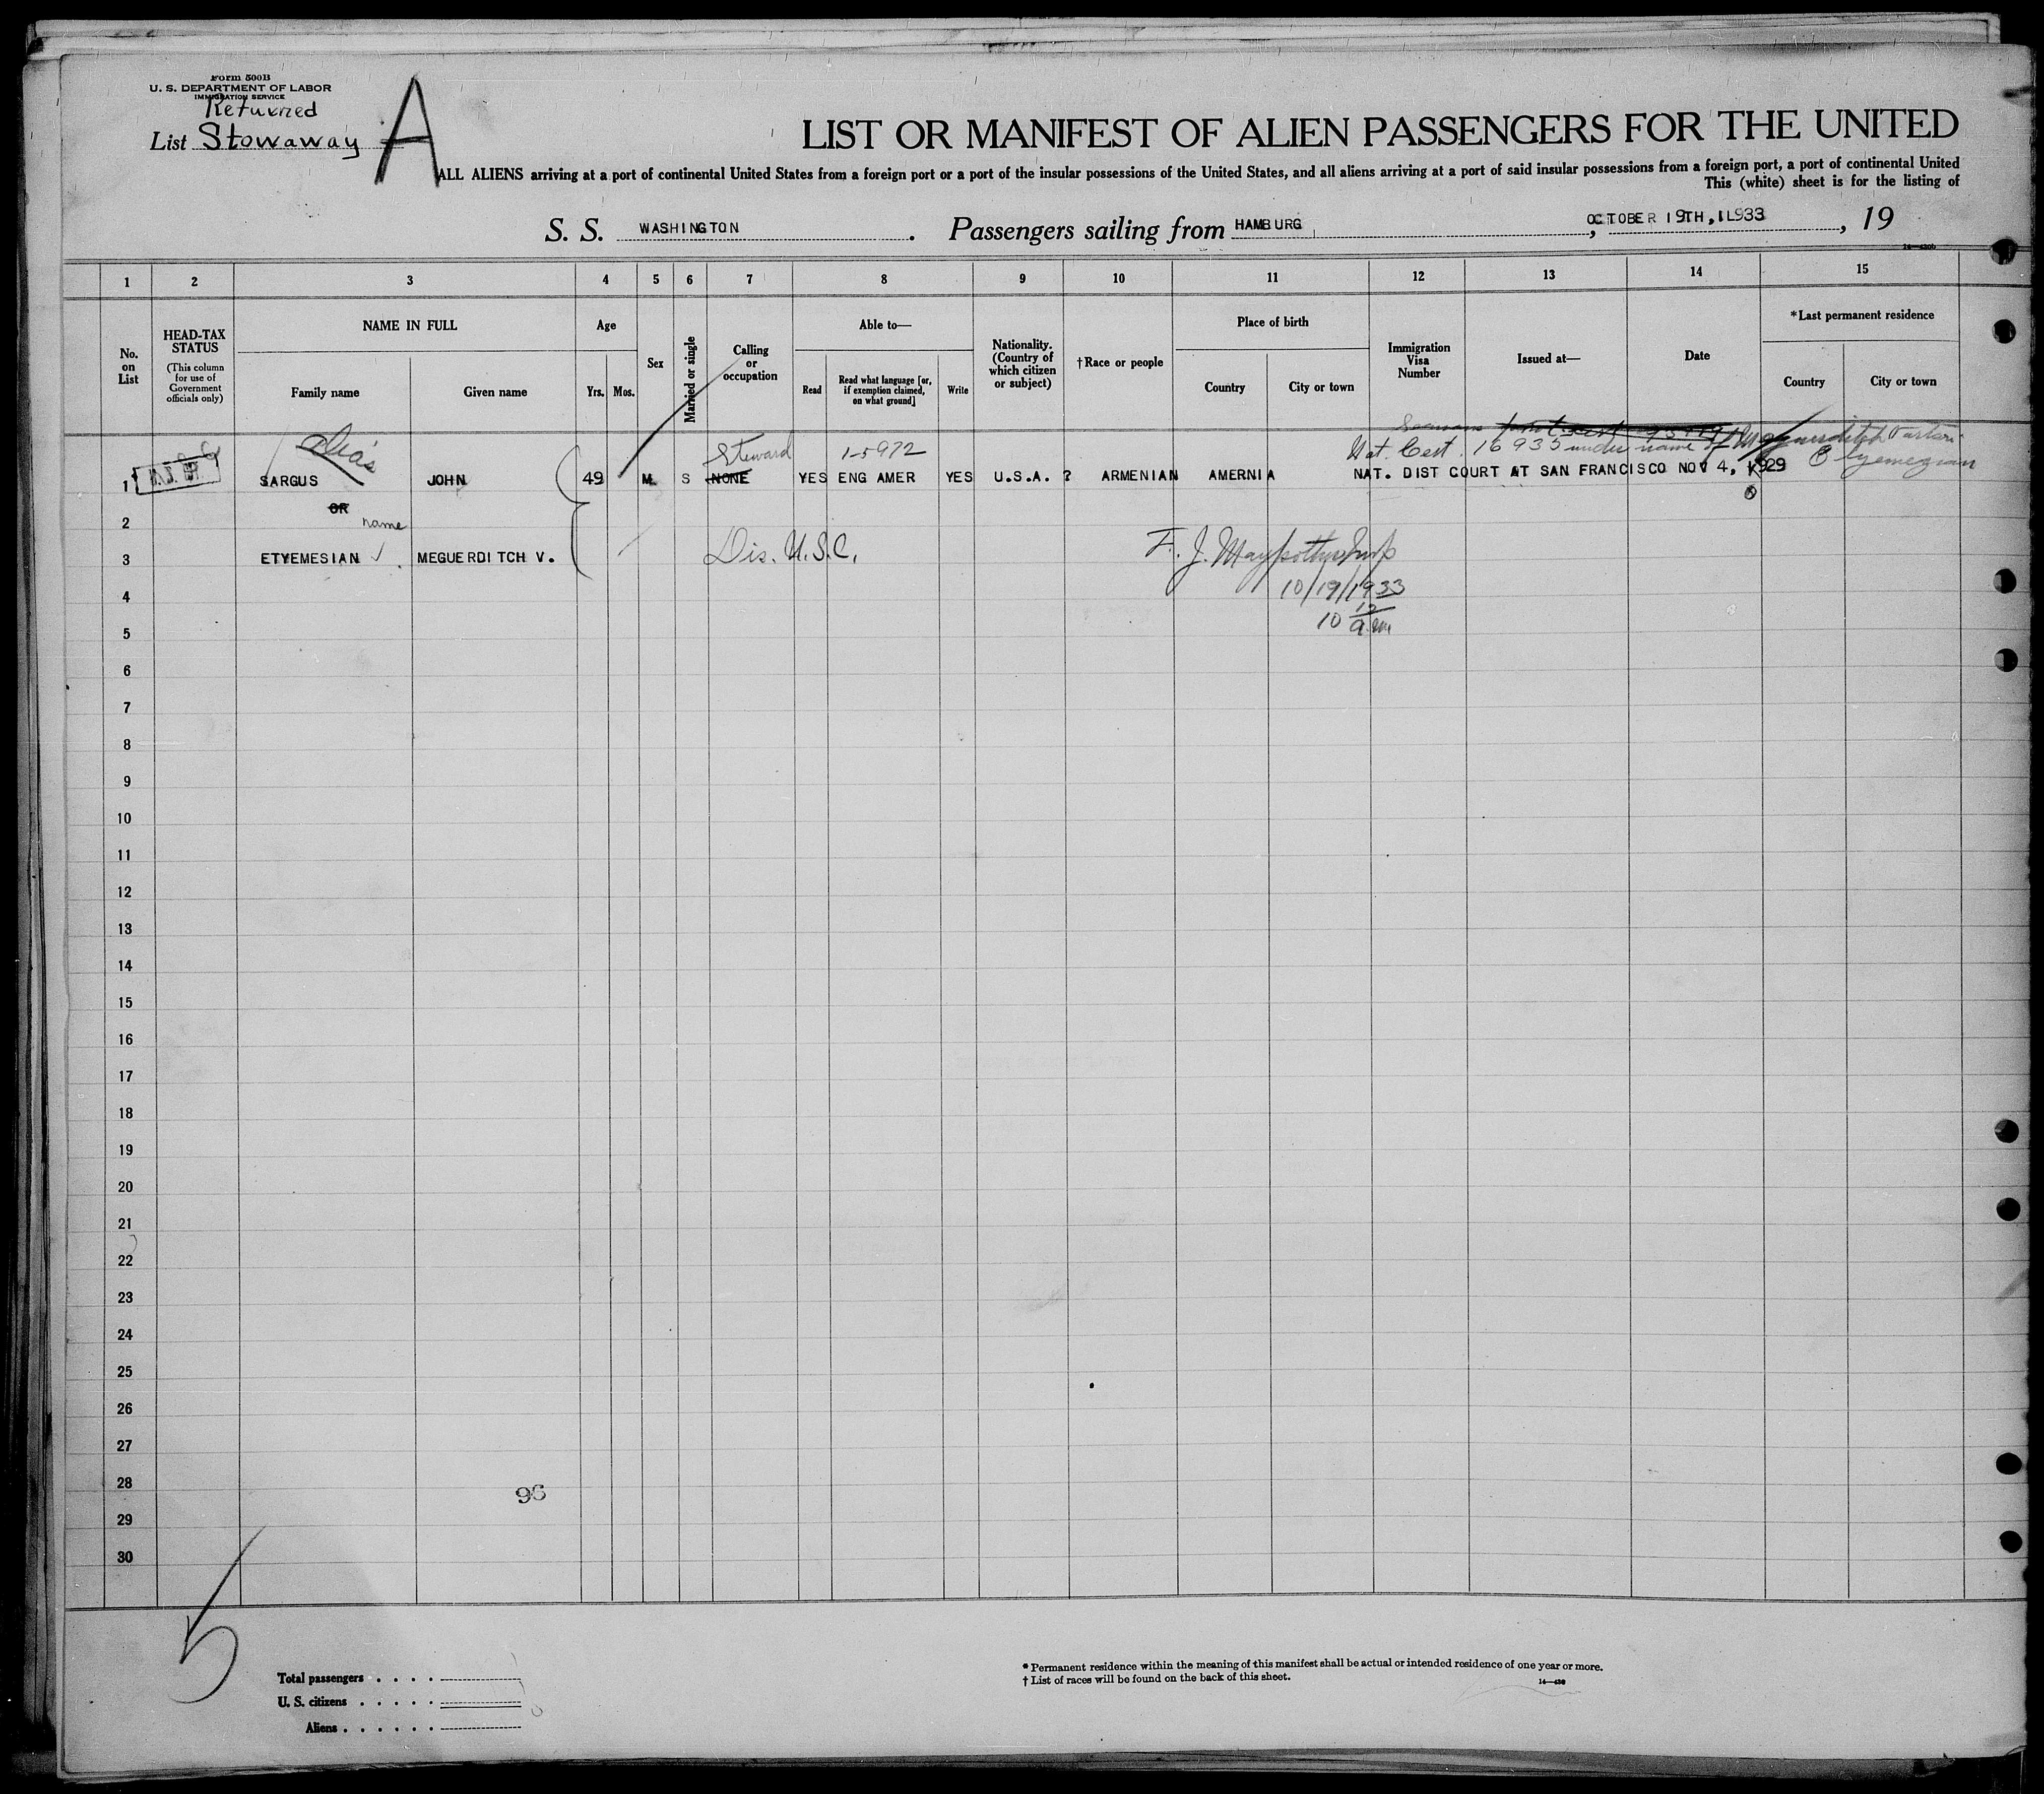 Form 500B
U. S. DEPARTMENT OF LABOR
IMMIGRATION SERVICE
Returned
List Stowaway A
LIST OR MANIFEST OF ALIEN PASSENGERS FOR THE UNITED
ALL ALIENS arriving at a port of continental United States from a foreign port or a port of the insular possessions of the United States, and all aliens arriving at a port of said insular possessions from a foreign port, a port of continental United
This (white) sheet is for the listing of
S. S. WASHINGTON . Passengers sailing from HAMBURG , OCTOBER 19TH, 1L933 , 19
1 2 3 4 5 6 7 8 9 10 11 12 13 14 15
No. on List
HEAD-TAX STATUS
(This column for use of Government officials only)
NAME IN FULL
Family name
Given name
Age
Yrs.
Mos.
Sex
Married or single
Calling or occupation
Able to—
Read
Read what language [or, if exemption claimed, on what ground]
Write
Nationality. (Country of which citizen or subject)
†Race or people
Place of birth
Country
City or town
Immigration Visa Number
Issued at—
Date
*Last permanent residence
Country
City or town
Seamans
alias Steward 1-5972 Nat. Cert. 16935 under name of
1 SARGUS JOHN 49 M S NONE YES ENG AMER YES U.S.A. ? ARMENIAN AMERNIA NAT. DIST COURT AT SAN FRANCISCO NOV 4, 1929
2 OR
name
3 ETYEMESIAN MEGUERDITCH V. Dis. U.S.C. F. J.
4 10/19/1933
5 10 10 a.m.
6
7
8
9
10
11
12
13
14
15
16
17
18
19
20
21
22
23
24
25
26
27
28
96
29
30
5
Total passengers
U. S. citizens
Aliens
* Permanent residence within the meaning of this manifest shall be actual or intended residence of one year or more.
† List of races will be found on the back of this sheet.
14—430